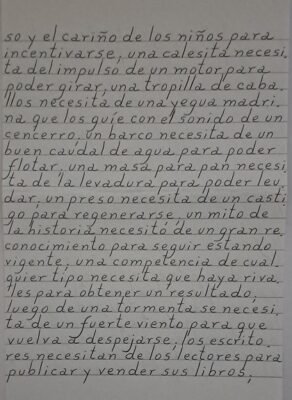 so y el cariño de los niños para
incentivarse, una calesita necesi
ta del impulso de un motor para
poder girar, una tropilla de caba.
llos necesita de una yegua madri
na que los guíe con el sonido de un
cencerro, un barco necesita de un
buen caudal de agua para poder
flotar, una masa para pan necesi
ta de la levadura para poder leu
dar, un preso necesita de un casti
go para regenerarse, un mito de
la historia necesitó de un gran re
conocimiento para seguir estando
vigente, una competencia de cual
quier tipo necesita que haya riva
les para obtener un resultado,
luego de una tormenta se necesi
ta de un fuerte viento para que
vuelva a despejarse, los escrito
res necesitan de los lectores para
publicar y vender sus libros,